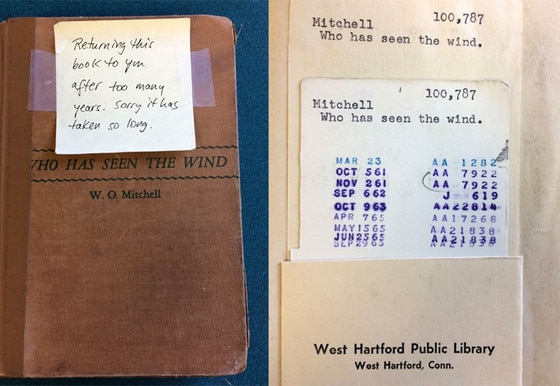 Returning this
book to you
after too many
years. Sorry it has
taken so long.
WHO HAS SEEN THE WIND
W. O. Mitchell
100,787
Mitchell
Who has seen the wind.
100,787
Mitchell
Who has seen the wind.
MAR 23 AA 1282
OCT 561 AA 7922
NOV 261 AA 7922
SEP 662 J 619
OCT 963 AA22814
APR 765 AA17268
MAY1565 AA21838
JUN2565 AA21838
SEP2965
West Hartford Public Library
West Hartford, Conn.